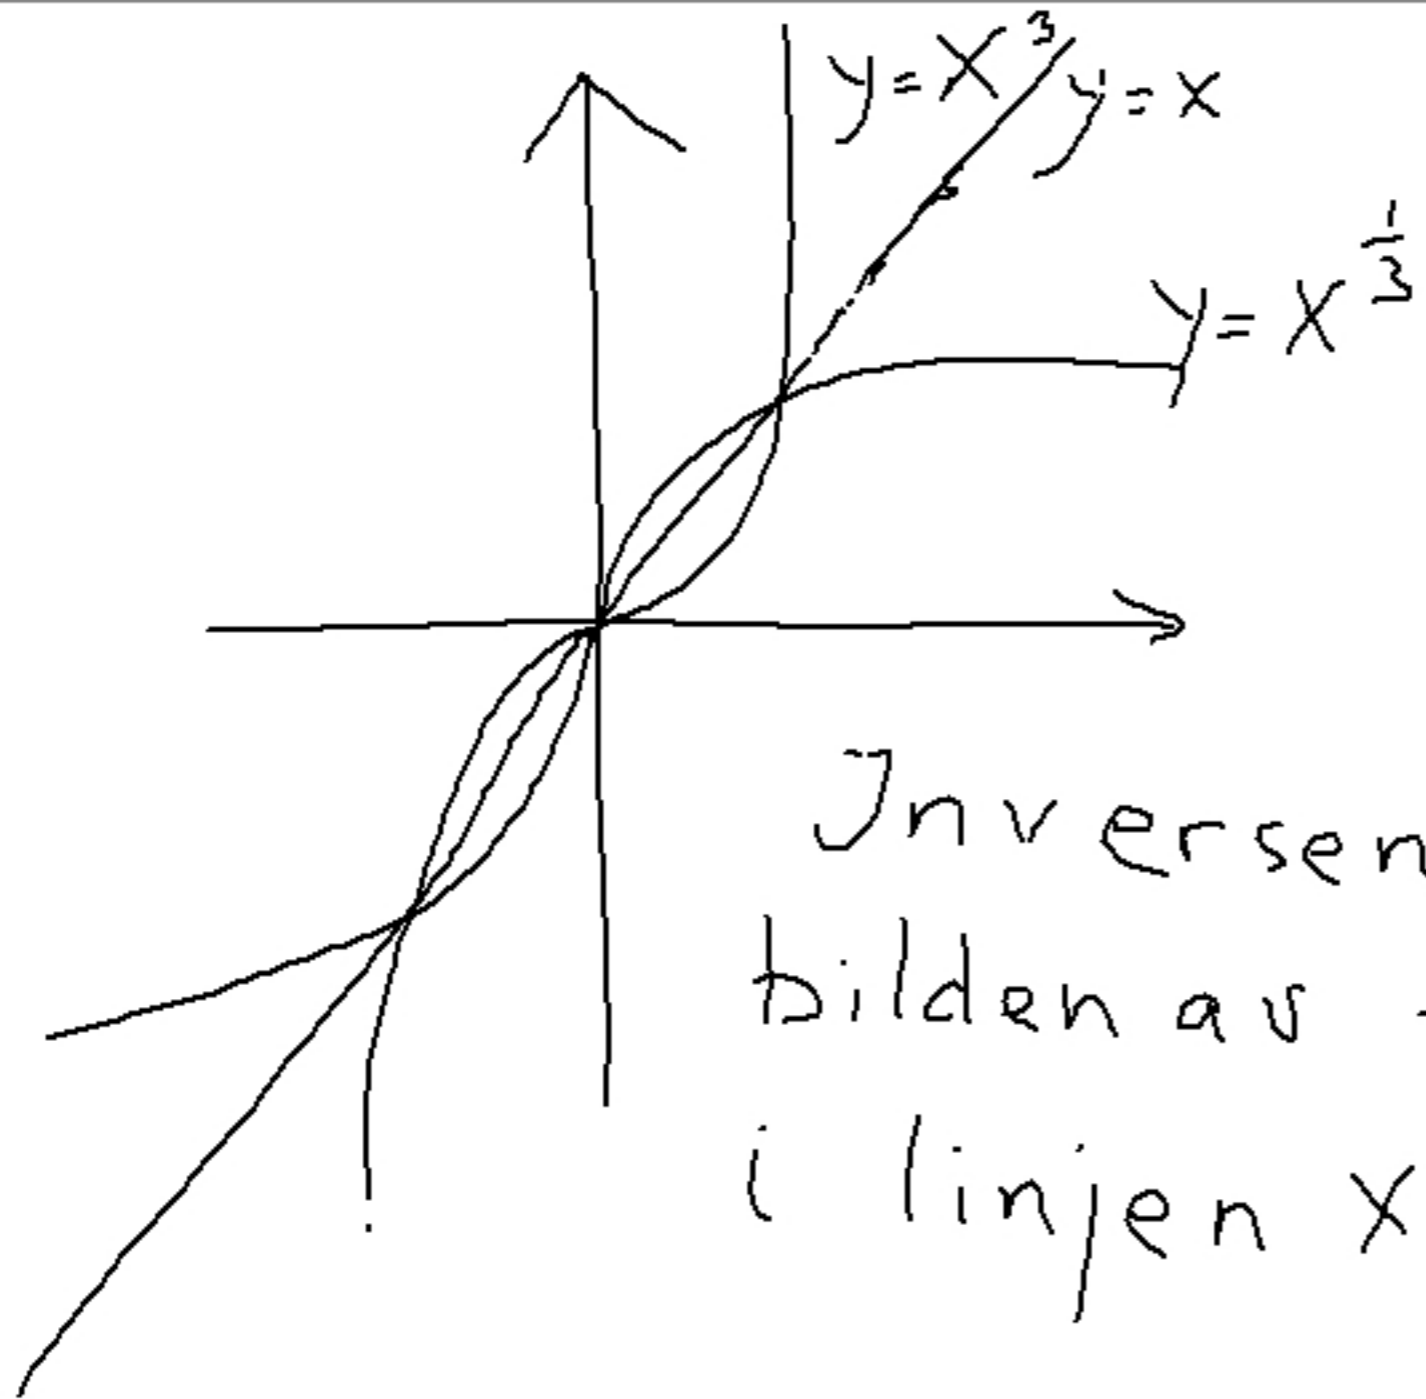 y = x³
y = x
y = x^{1/3}
Inversen
bilden av
i linjen x